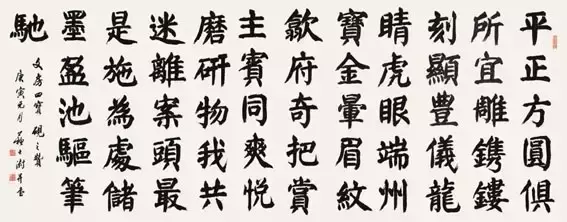 平正方圓俱
所宜雕鎸鏤
刻顯豐儀龍
睛虎眼端州
寶金暈眉紋
歙府奇把賞
主賓同爽悅
磨研物我共
迷離案頭最
是施為處儲
墨盈池驅筆
馳
文房四寶硯之贊
庚寅元月蘇士澍并書